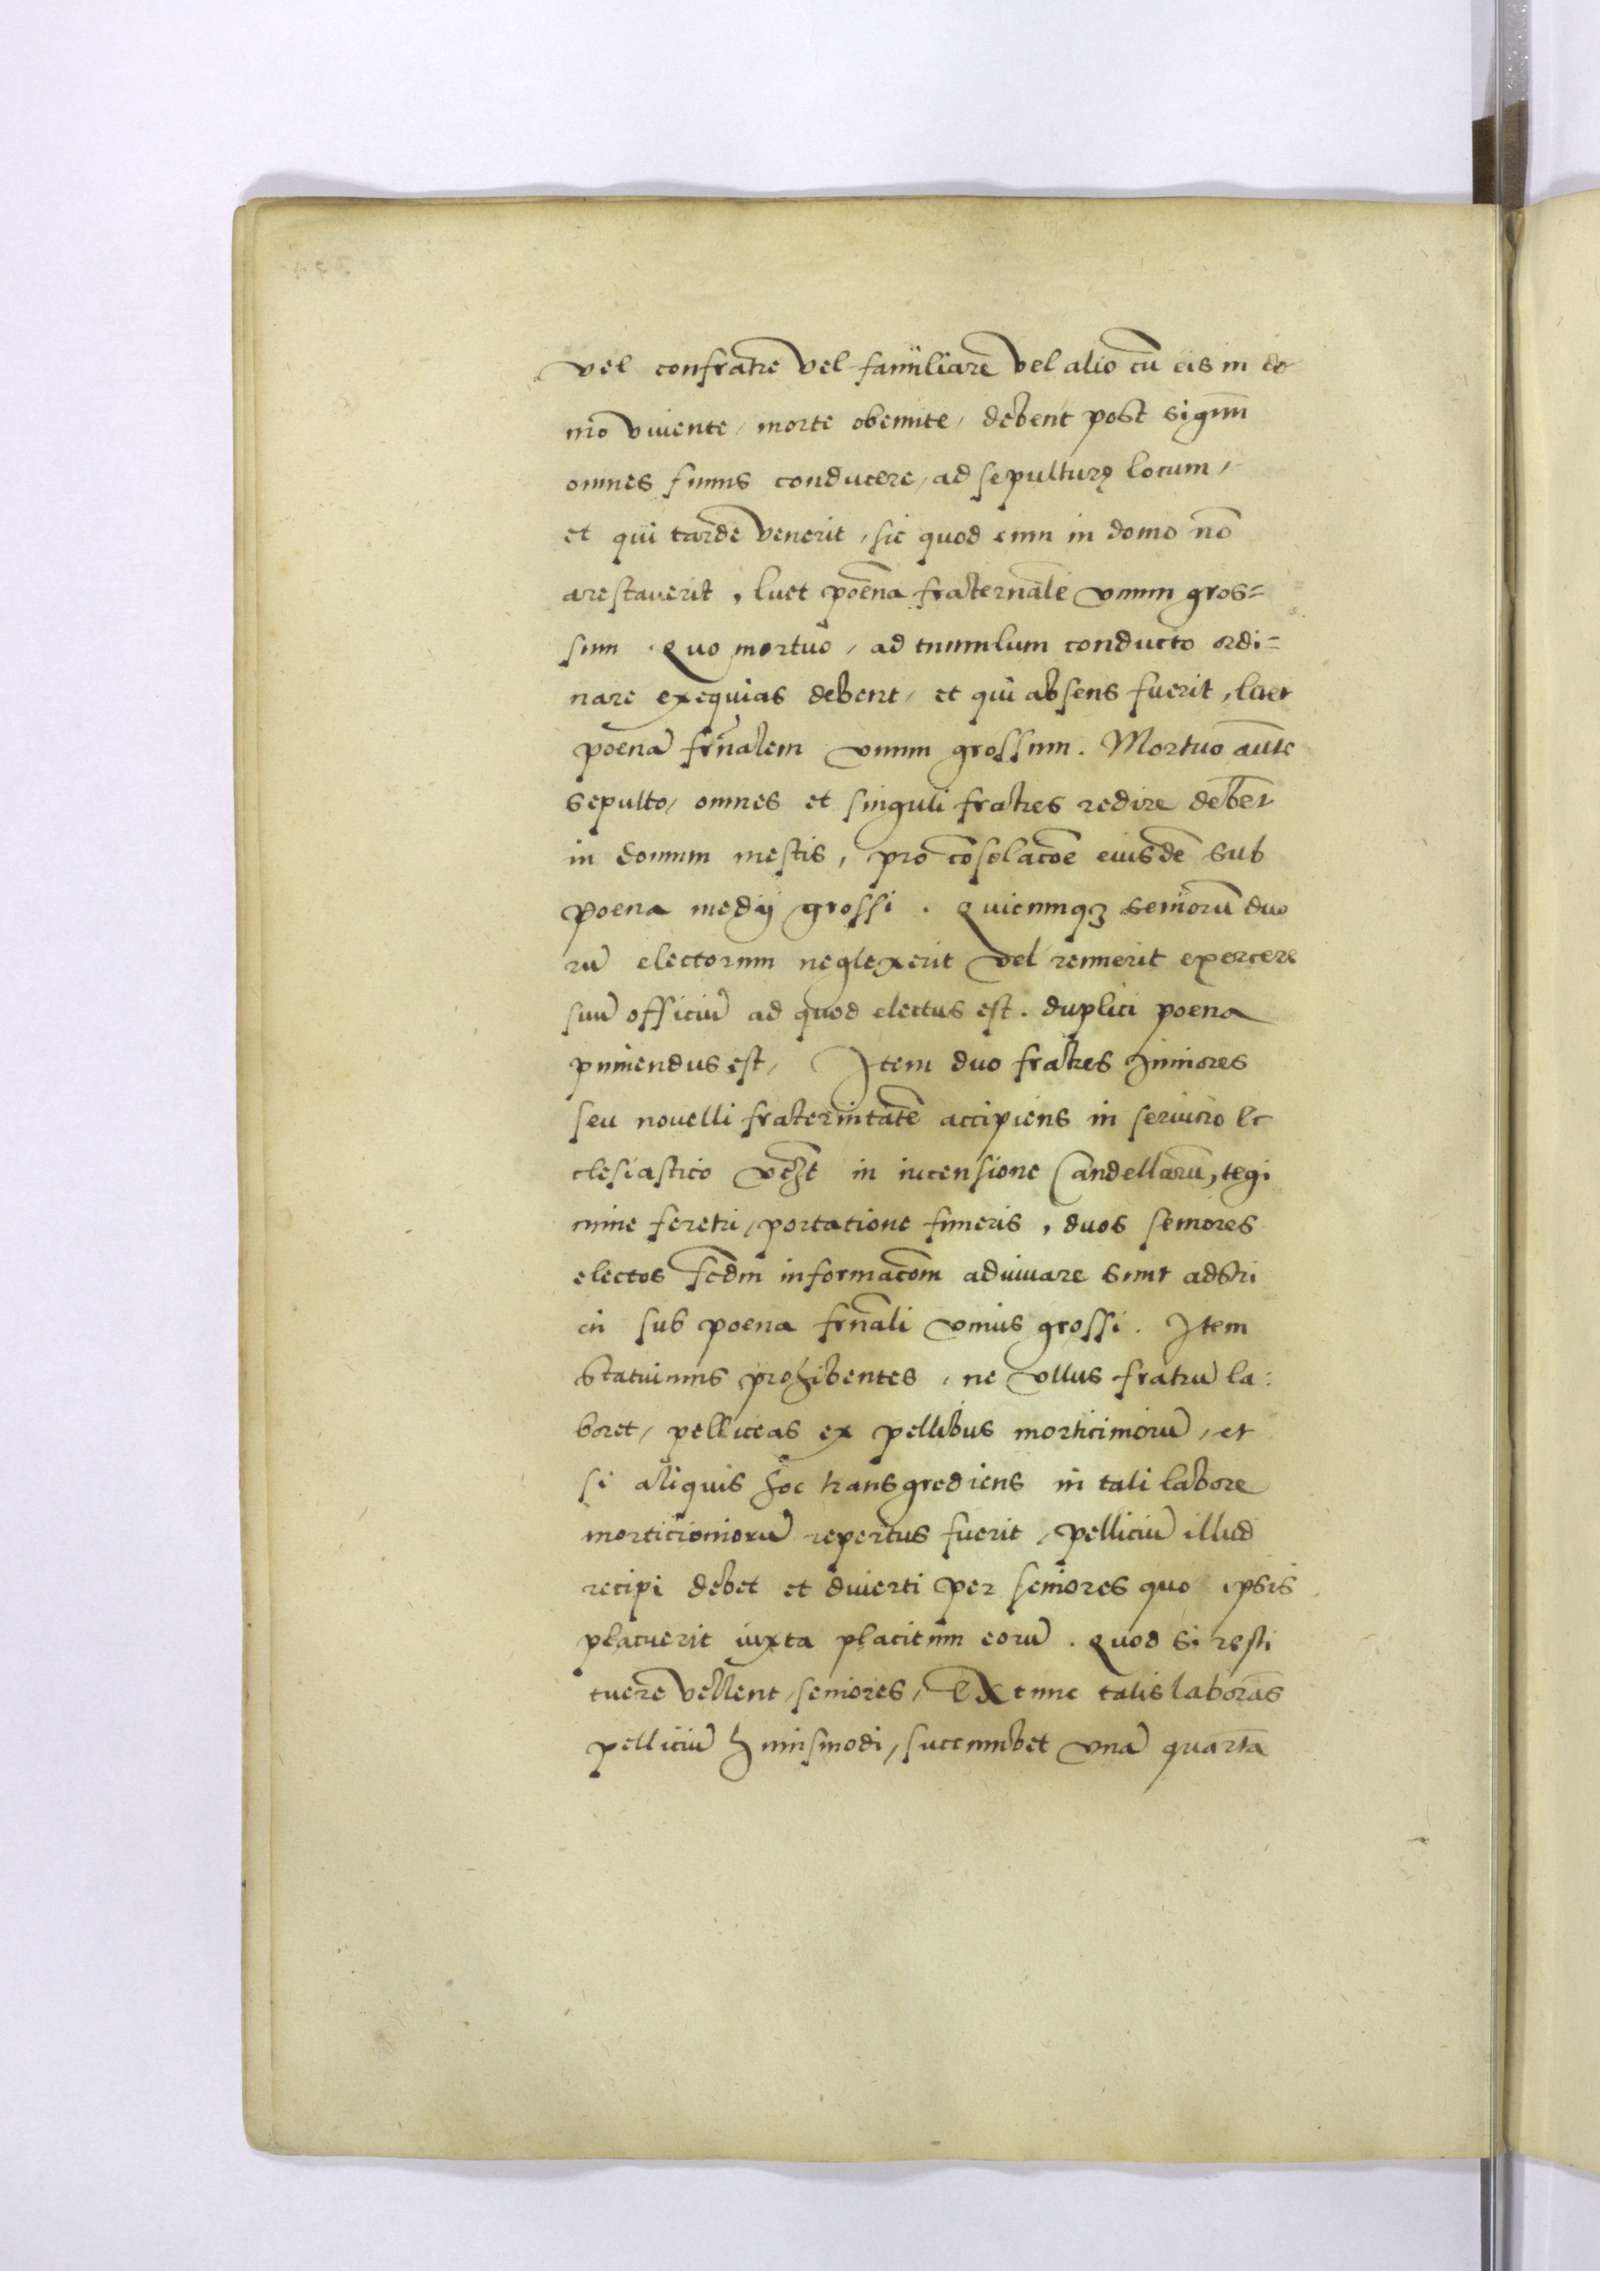 vel confratre vel familiare vel alio cū eis in do
mo viuente, morte obeunte, debent post signū
omnes funus conducere, ad sepulturę locum,
et qui tarde venerit, sic quod eum in domo nō
arestauerit, luet poena fraternale vnum gros=
sum. Quo mortuo, ad tumulum conducto ordi=
nare exequias debent, et qui absens fuerit, luet
poenā frnalem vnum grossum. Mortuo aūte
sepulto, omnes et singuli fratres redire debēt
in domum mestis, pro cōsolacōe eiusdē sub
poena medij grossi. Quicumqȝ seniorū duo
rū electorum neglexerit vel renuerit exercere
suū officiū ad quod electus est. duplici poena
puniendus est, Item duo fratres Juniores
seu nouelli fraternitatē accipiens in seruicio Ec
clesiastico vczt in incensione Candellarū, tegi
mine feretri, portatione funeris, duos seniores
electos scdm informacōm adiuuare sunt adstri
cti sub poena frnali vnius grossi. Item
Statuimus prohibentes, ne vllus fratrū la:
boret, pelliceas ex pellibus morticiniorū, et
si aliquis hoc transgrediens in tali labore
morticioniorū repertus fuerit, pelliciū illud
recipi debet et diuerti per seniores quo ipsis
placuerit iuxta placitum eorū. Quod si resti
tuere vellent, seniores, Ex tunc talis laborās
pelliciū huiusmodi, succumbet vnā quartā